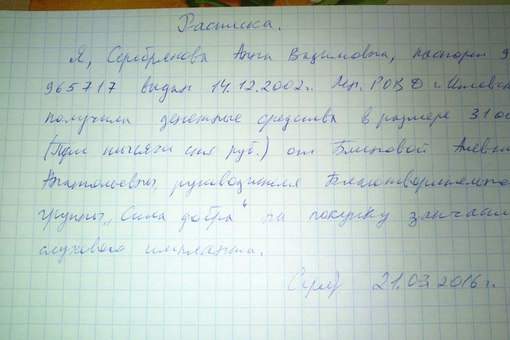 Расписка.
Я, Серебрякова Анна Вадимовна, паспорт 9
965717 выдан 14.12.2002г. Лен. РОВД г. Ижевск
получила денежные средства в размере 31 
(Три тысячи сто руб.) от Блиновой
Анатольевны, руководителя Благотворительно
группы „Сила добра" на покупку запчасти
слухового импланта.
21.03.2016г.